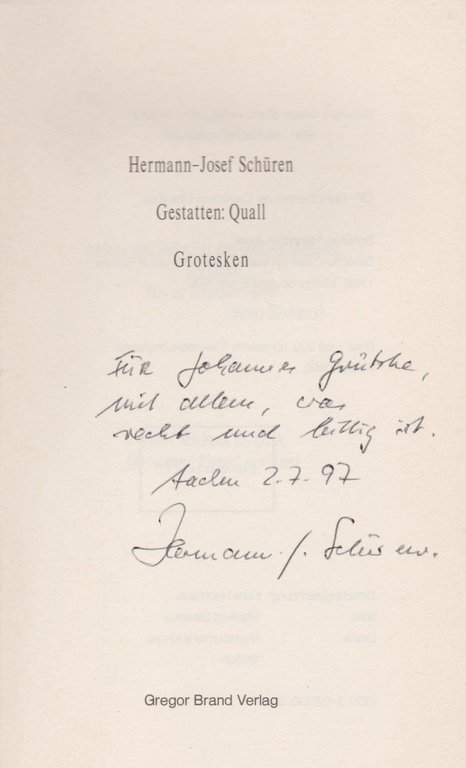 Hermann-Josef Schüren
Gestatten: Quall
Grotesken
Für Johannes Grützke,
mit allem, was
recht und billig ist.
Aachen 2.7.97
Hermann-J. Schüren.
Gregor Brand Verlag